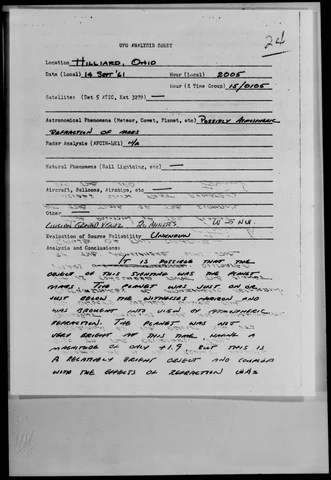 24
UFO ANALYSIS SHEET
Location HILLIARD, OHIO
Date (Local) 14 SEPT '61 Hour (Local) 2005
Hour (Z Time Group) 15/0105
Satellite: (Det 5 ATIC, Ext 3279)
Astronomical Phenomena (Meteor, Comet, Planet, etc) POSSIBLY ATMOSPHERIC
REFRACTION OF MARS
Radar Analysis (AFCIN-4E1) N/A
Natural Phenomena (Ball Lightning, etc)
Aircraft, Balloons, Airships, etc
Other
CIVILIAN GROUND VISUAL 20 MINUTES W
Evaluation of Source Reliability UNKNOWN
Analysis and Conclusions:
IT IS POSSIBLE THAT THE
OBJECT OF THIS SIGHTING WAS THE PLANET
MARS. THE PLANET WAS JUST ON OR
JUST BELOW THE WITNESSES HORIZON AND
WAS BROUGHT INTO VIEW BY ATMOSPHERIC
REFRACTION. THE PLANET WAS NOT
VERY BRIGHT AT THIS DATE, HAVING A
MAGNITUDE OF ONLY +1.9, BUT THIS IS
A RELATIVELY BRIGHT OBJECT AND COUPLED
WITH THE EFFECTS OF REFRACTION WAS